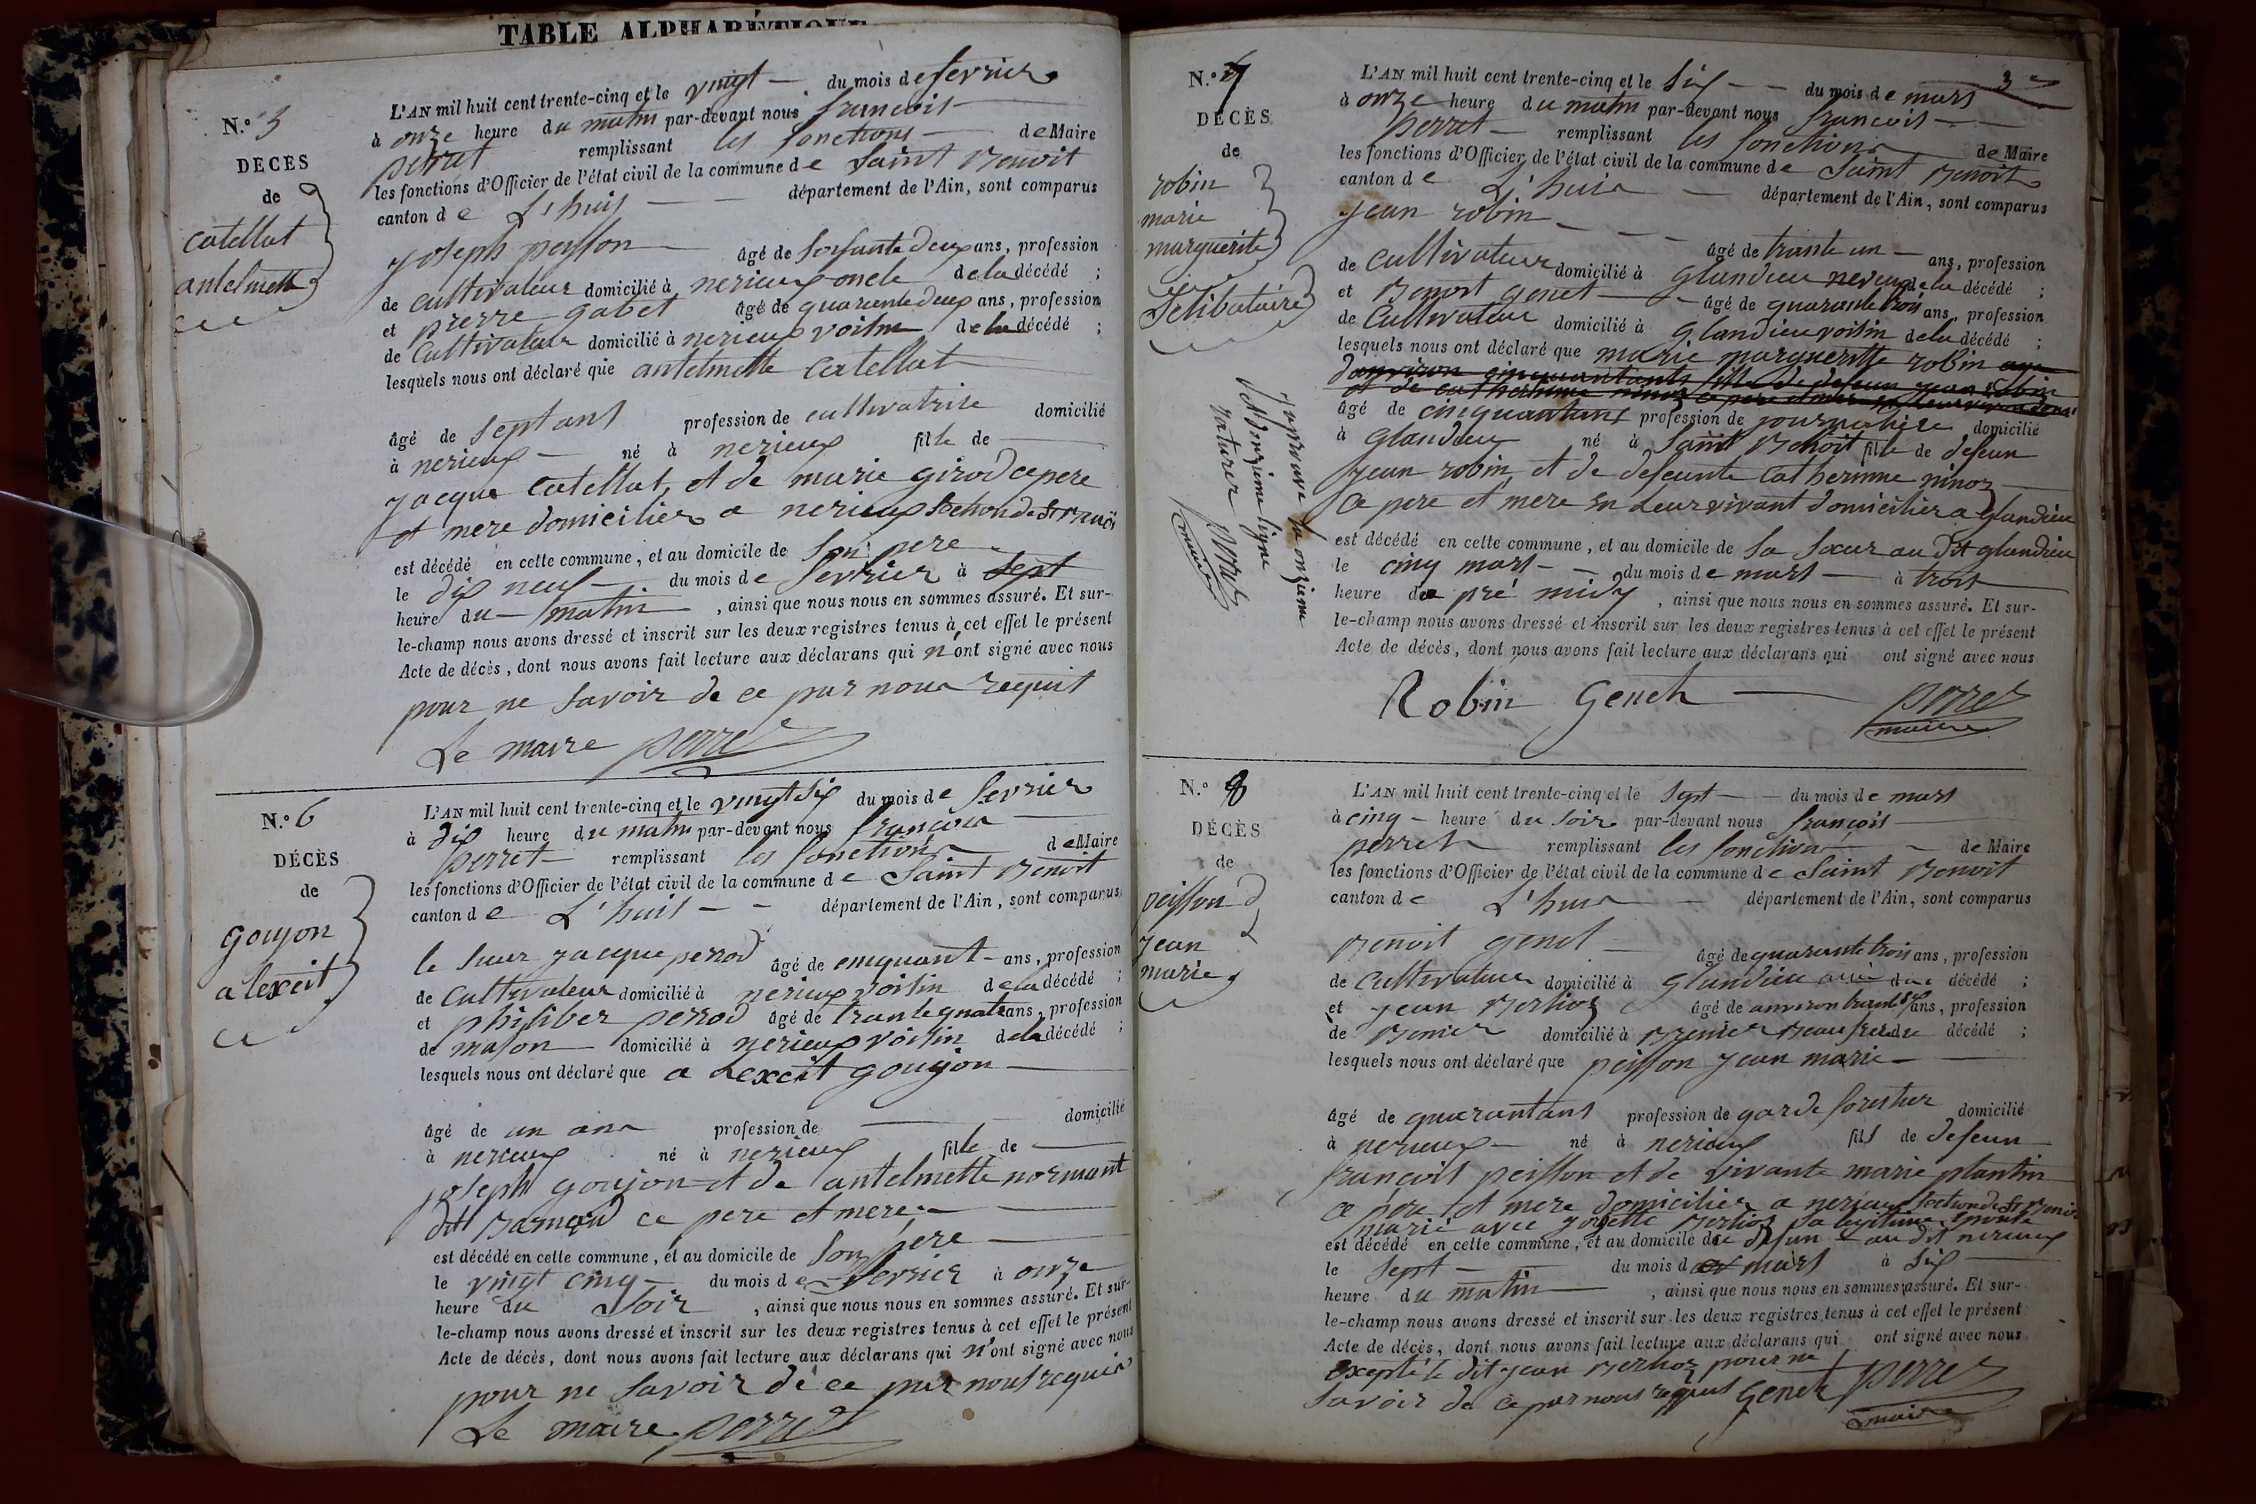 TABLE ALPHABÉTIQUE
N.º 5
DECES
de
catellat
antelmette
L'AN mil huit cent trente-cinq et le vingt du mois de fevrier
à onze heure du matin par-devant nous francois
perret remplissant les fonctions de Maire
les fonctions d'Officier de l'état civil de la commune de Saint Benoit
canton de L'huis département de l'Ain, sont comparus
joseph peysson âgé de soisante deux ans, profession
de cultivateur domicilié à nerieux oncle de la décédé ;
et pierre gabet âgé de quarante deux ans, profession
de Cultivateur domicilié à nerieux voisin de la décédé ;
lesquels nous ont déclaré que antelmette catellat
âgé de sept ans profession de cultivatrise domicilié
à nerieux né à nerieux fille de
jacque catellat, et de marie girod ce pere
et mere domicilier a nerieux section de St Benoi
est décédé en cette commune, et au domicile de son pere
le dix neuf du mois de fevrier à sept
heure du matin , ainsi que nous nous en sommes assuré. Et sur-
le-champ nous avons dressé et inscrit sur les deux registres tenus à cet effet le présent
Acte de décès, dont nous avons fait lecture aux déclarans qui n'ont signé avec nous
pour ne savoir de ce par nous requit
Le maire perret
N.º 6
DÉCÈS
de
goujon
alexcit
L'AN mil huit cent trente-cinq et le vingt six du mois de fevrier
à dix heure du matin par-devant nous françois
perret remplissant les fonctions de Maire
les fonctions d'Officier de l'état civil de la commune de Saint Benoit
canton de L'huis département de l'Ain, sont comparus
le sieur jacque perrod âgé de cinquant ans, profession
de cultivateur domicilié à nerieux voisin de la décédé ;
et philiber perrod âgé de trante quatre ans, profession
de mason domicilié à nerieux voisin de la décédé ;
lesquels nous ont déclaré que a Lexcit goujon
âgé de un ans profession de domicilié
à nerieux né à nerieux fille de
joseph goujon et de antelmette normant
dit ce pere et mere
est décédé en cette commune, et au domicile de son père
le vingt cinq du mois de fevrier à onze
heure du soir , ainsi que nous nous en sommes assuré. Et sur-
le-champ nous avons dressé et inscrit sur les deux registres tenus à cet effet le présent
Acte de décès, dont nous avons fait lecture aux déclarans qui n'ont signé avec nous
pour ne savoir de ce par nous requis
Le maire perret
3
N.º 7
DÉCÈS
de
robin
marie
marguerite
Selibataire
japrouve la onzieme
et douzieme ligne
raturer perret
maire
L'AN mil huit cent trente-cinq et le six du mois de mars
à onze heure du matin par-devant nous francois
perret remplissant les fonctions de Maire
les fonctions d'Officier de l'état civil de la commune de Saint Benoit
canton de L'huis département de l'Ain, sont comparus
jean robin âgé de trante un ans, profession
de cultivateur domicilié à glandieu neveux de la décédé ;
et Benoit genet âgé de quarante trois ans, profession
de Cultivateur domicilié à glandieu voisin de la décédé ;
lesquels nous ont déclaré que marie margueritte robin
âgé de cinquantans profession de journaliere domicilié
à glandieu né à Saint Benoit fille de defeun
jean robin, et de defeunte Catherinne ninoz
ce pere et mere en Leur vivant domicilier a glandieu
est décédé en cette commune, et au domicile de sa sœur au dit glandieu
le cinq mars du mois de mars à trois
heure da pré midy , ainsi que nous nous en sommes assuré. Et sur-
le-champ nous avons dressé et inscrit sur les deux registres tenus à cet effet le présent
Acte de décès, dont nous avons fait lecture aux déclarans qui ont signé avec nous
Robin Genet perret
maire
N.º 8
DÉCÈS
de
peisson
jean
marie
L'AN mil huit cent trente-cinq et le sept du mois de mars
à cinq heure du soir par-devant nous françois
perret remplissant les fonctions de Maire
les fonctions d'Officier de l'état civil de la commune de Saint Benoit
canton de L'huis département de l'Ain, sont comparus
Benoit genet âgé de quarante trois ans, profession
de cultivateur domicilié à glandieu du décédé ;
et jean Berlioz âgé de anviron trante six ans, profession
de domicilié à Beaufrere du décédé ;
lesquels nous ont déclaré que peisson jean marie
âgé de quarantans profession de garde forestier domicilié
à nerieux né à nerieux fils de defeun
françois peisson et de vivante marie plantin
ce pere et mere domicilier a nerieux section de St Benoi
marié avec josette Berlioz sa legitime
est décédé en cette commune, et au domicile du defun au dit nerieux
le sept du mois de mars à six
heure du matin , ainsi que nous nous en sommes assuré. Et sur-
le-champ nous avons dressé et inscrit sur les deux registres tenus à cet effet le présent
Acte de décès, dont nous avons fait lecture aux déclarans qui ont signé avec nous
excepté le dit jean Berlioz pour ne
savoir de ce par nous requis Genet perret
maire